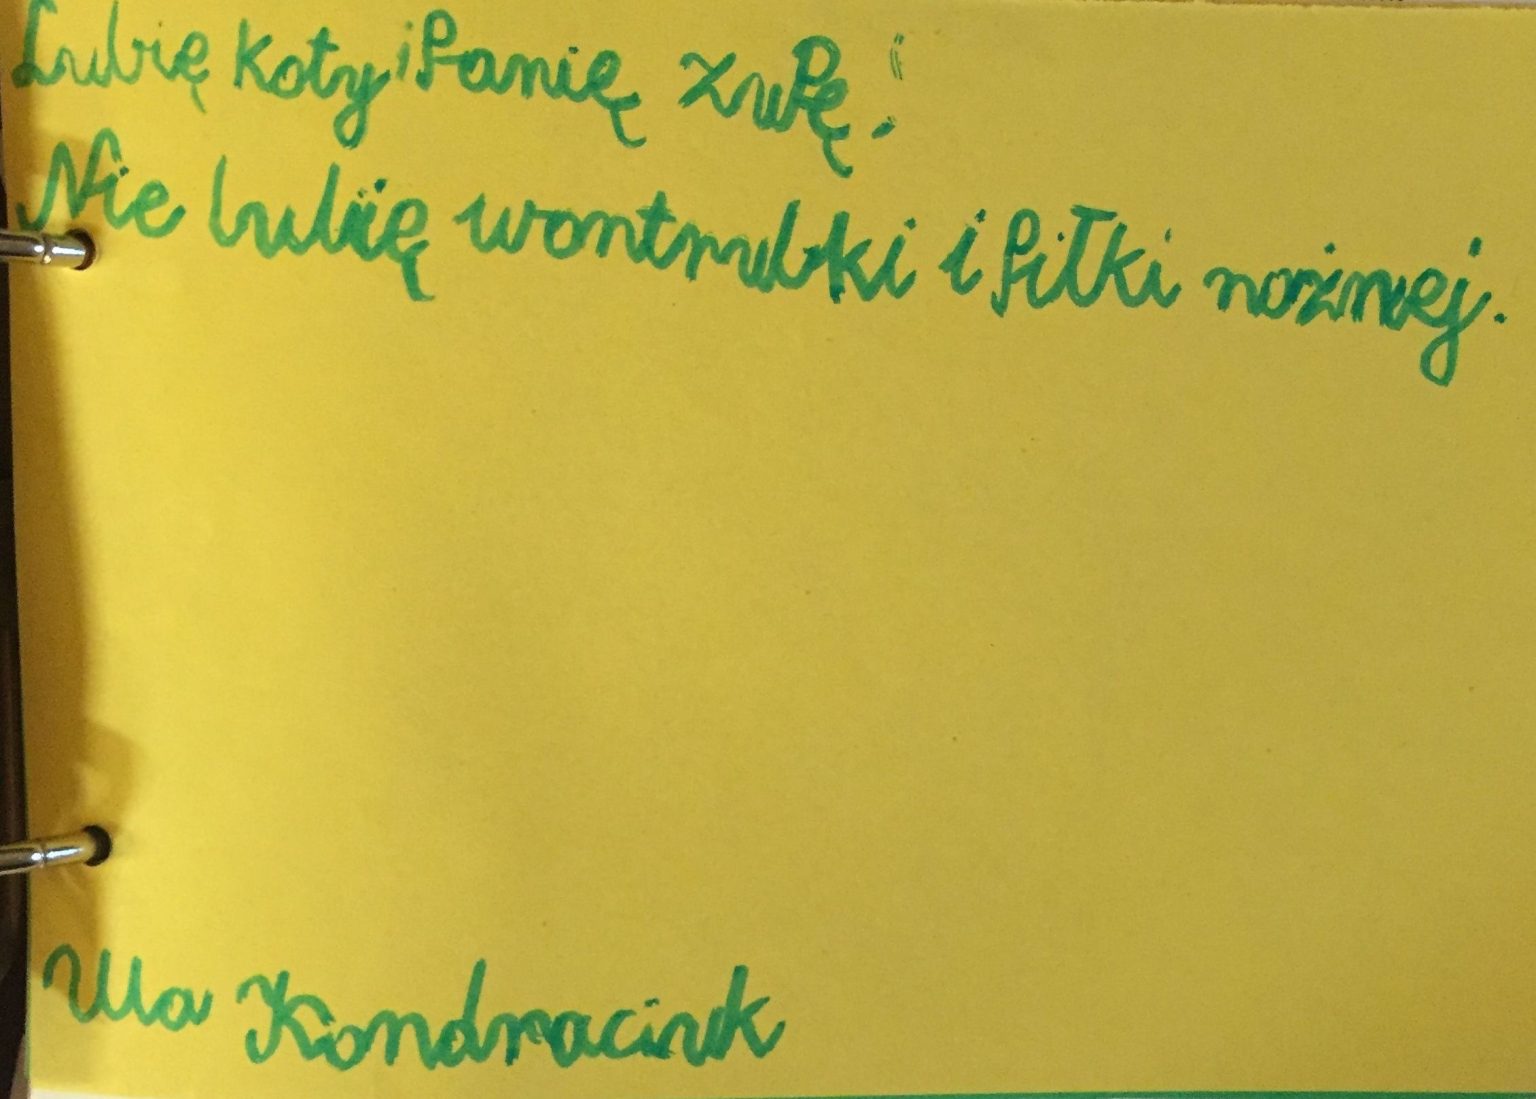 Lubię koty i Panię zupę!
Nie lubię wontrubki i piłki nożnej.
Ula Kondraciuk